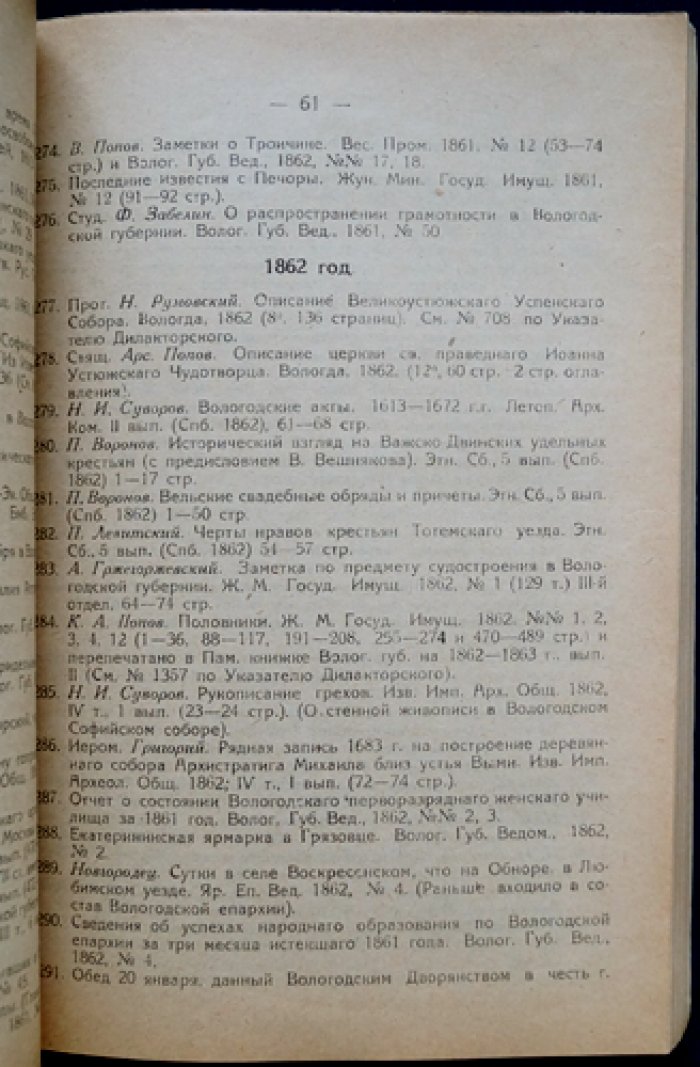 — 61 —
274. В. Попов. Заметки о Троичине. Вес. Пром. 1861, № 12 (53—74
стр.) и Волог. Губ. Вед., 1862, №№ 17, 18.
275. Последние известия с Печоры. Жун. Мин. Госуд. Имущ. 1861,
№ 12 (91—92 стр.).
276. Студ. Ф. Забелин. О распространении грамотности в Вологод-
ской губернии. Волог. Губ. Вед., 1861, № 50
1862 год
277. Прот. Н. Румовский. Описание Великоустюжскаго Успенскаго
Собора. Вологда, 1862 (8°, 136 страниц). См. № 708 по Указа-
телю Дилакторского.
278. Свящ. Арс. Попов. Описание церкви св. праведнаго Иоанна
Устюжскаго Чудотворца. Вологда, 1862. (12°, 60 стр. 2 стр. огла-
вления).
279. Н. И. Суворов. Вологодские акты. 1613—1672 г.г. Летоп. Арх.
Ком. II вып. (Спб. 1862), 61—68 стр.
280. П. Воронов. Исторический взгляд на Важско-Двинских удельных
крестьян (с предисловием В. Вешнякова). Этн. Сб., 5 вып. (Спб.
1862) 1—17 стр.
281. П. Воронов. Вельские свадебные обряды и причеты. Этн. Сб., 5 вып.
(Спб. 1862) 1—50 стр.
282. П. Левитский. Черты нравов крестьян Тотемскаго уезда. Этн.
Сб., 5 вып. (Спб. 1862) 54—57 стр.
283. А. Гржегоржевский. Заметка по предмету судостроения в Воло-
годской губернии. Ж. М. Госуд. Имущ. 1862, № 1 (129 т.) III-й
отдел, 64—74 стр.
284. К. А. Попов. Половники. Ж. М. Госуд. Имущ. 1862, №№ 1, 2,
3, 4, 12 (1—36, 88—117, 191—208, 255—274 и 470—489 стр.) и
перепечатано в Пам. книжке Волог. губ. на 1862—1863 г., вып.
II (См. № 1357 по Указателю Дилакторского).
285. Н. И. Суворов. Рукописание грехов. Изв. Имп. Арх. Общ. 1862,
IV т., 1 вып. (23—24 стр.). (О стенной живописи в Вологодском
Софийском соборе).
286. Иером. Григорий. Рядная запись 1683 г. на построение деревян-
наго собора Архистратига Михаила близ устья Выми. Изв. Имп.
Археол. Общ. 1862; IV т., I вып. (72—74 стр.).
287. Отчет о состоянии Вологодскаго перворазряднаго женскаго учи-
лища за 1861 год. Волог. Губ. Вед., 1862, №№ 2, 3.
288. Екатерининская ярмарка в Грязовце. Волог. Губ. Ведом., 1862,
№ 2.
289. Новгородец. Сутки в селе Воскресенском, что на Обноре, в Лю-
бимском уезде. Яр. Еп. Вед. 1862, № 4. (Раньше входило в со-
став Вологодской епархии).
290. Сведения об успехах народнаго образования по Вологодской
епархии за три месяца истекшаго 1861 года. Волог. Губ. Вед.,
1862, № 4.
291. Обед 20 января, данный Вологодским Дворянством в честь г.